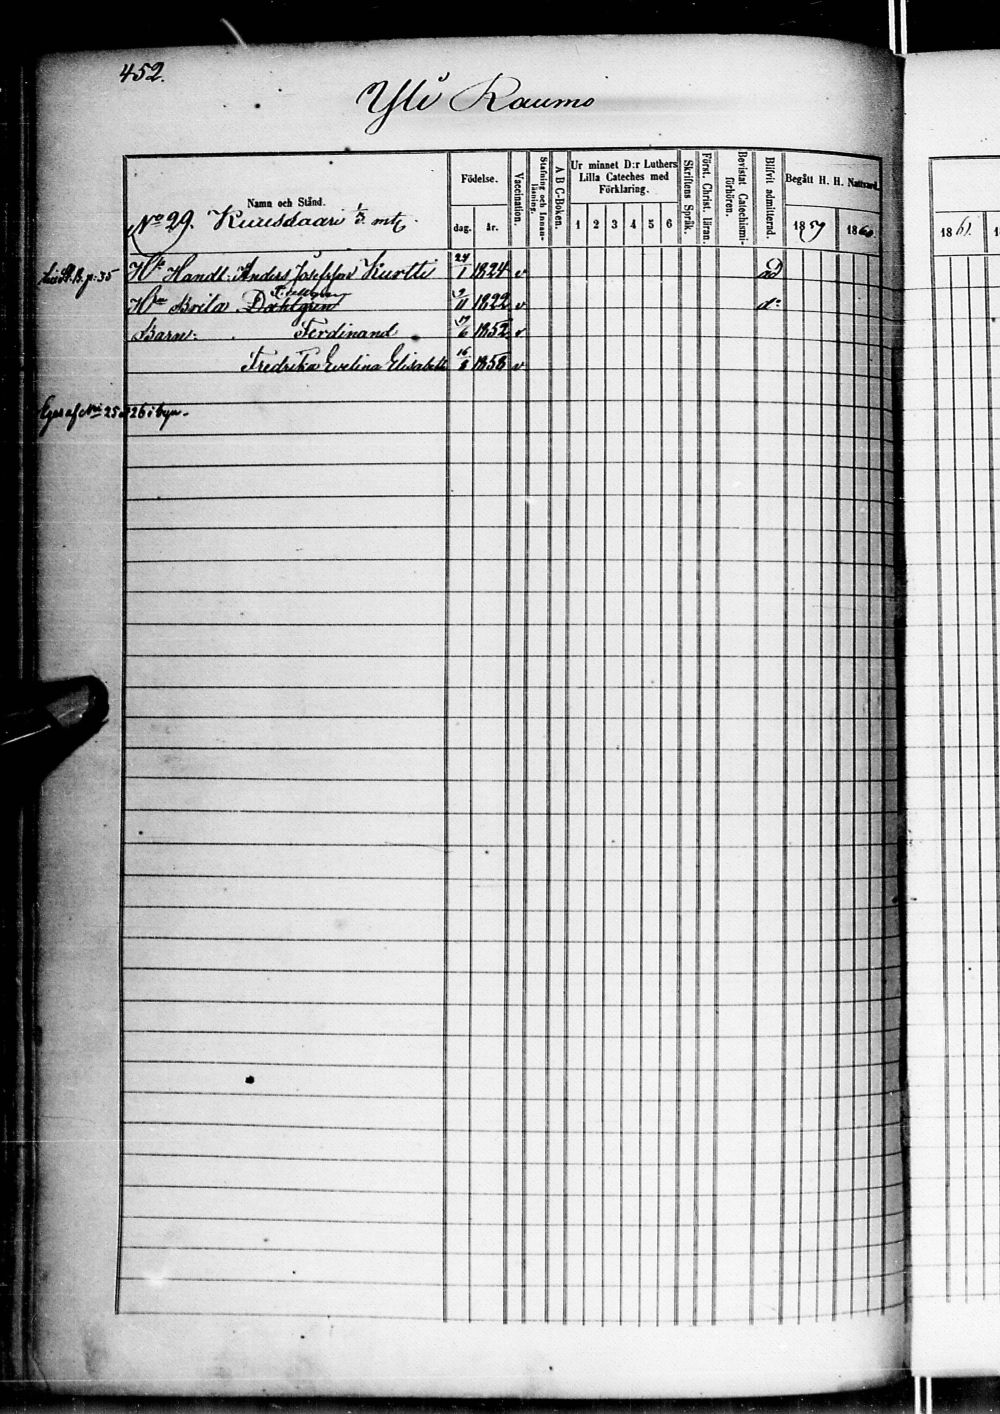 452.
Yli Raumo
Namn och Stånd.
Födelse.
dag.
år.
Vaccination.
Stafning och Innanläsning.
A B C-Boken.
Ur minnet D:r Luthers Lilla Cateches med Förklaring.
1 2 3 4 5 6
Skriftens Språk.
Först. Christ. läran.
Bevistat Catechismiförhören.
Blifvit admitterad.
Begått H. H. Nattvard.
1859
1860
1861
No 29. mt.
p. 35 Handl. Anders Josefsson Kurtti 24/1 1824 v
Brita Dahlgren 1822 v do
Barn: Ferdinand 19/6 1852 v
Fredrika Evelina Elisabeth 1858 v
Eges af No 25 o 26 i byn.